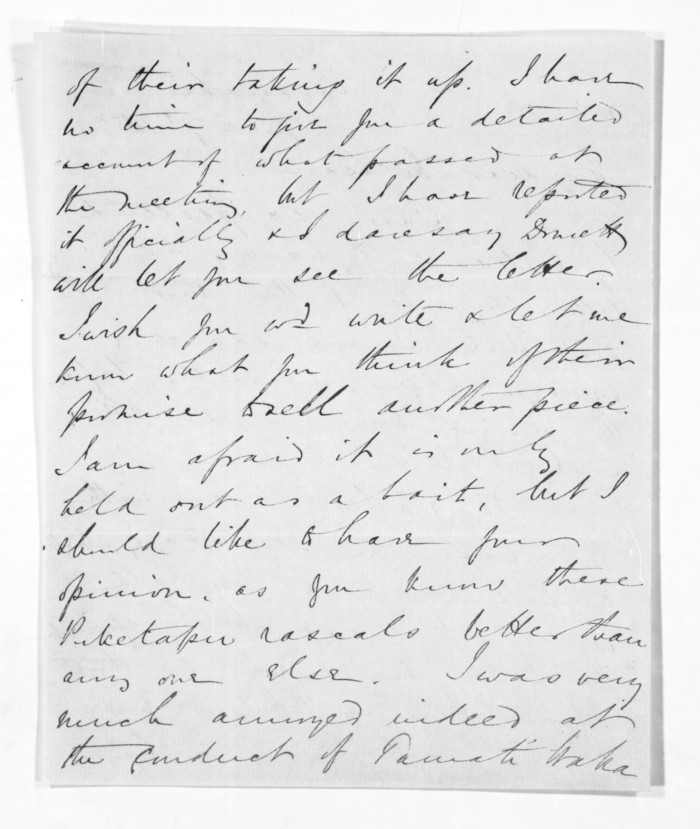 of their taking it up. I have
no time to give you a detailed
account of what passed at
the meeting, but I have reported
it officially & I dare say
will let you see the letter.
I wish you wd write & let me
know what you think of their
promise to sell another piece.
I am afraid it is only
held out as a bait, but I
should like to have your
opinion, as you know these
Puketapu rascals better than
any one else. I was very
much annoyed indeed at
the conduct of Tamati Waka